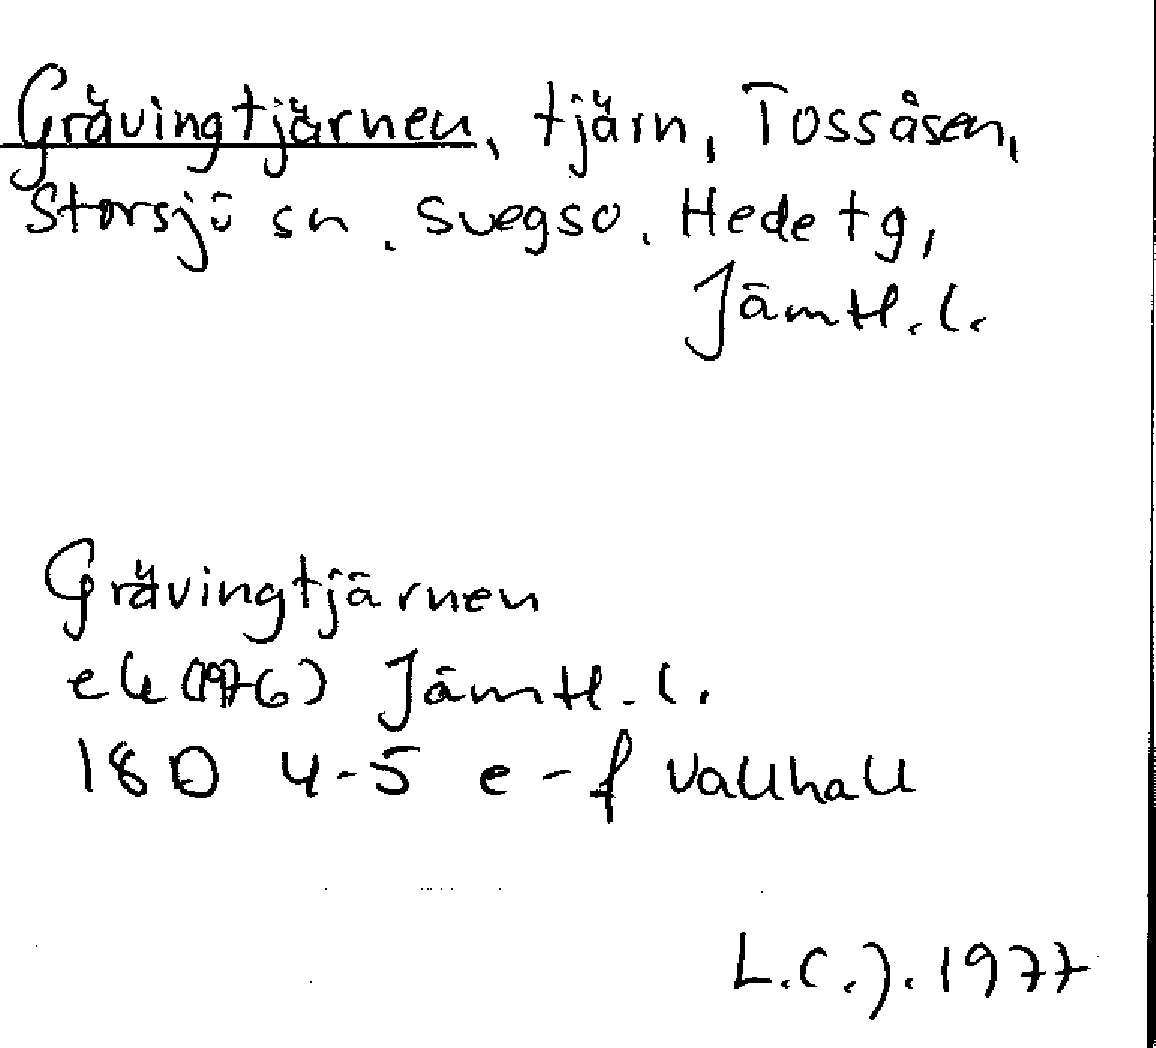 Grävingtjärnen, tjärn, Tossåsen,
Storsjö sn. Svegs o. Hede tg,
Jämtl. l.
Grävingtjärnen
ek (1976) Jämtl. l.
18D 4-5 e-f Vallhall
L.C.J. 1977